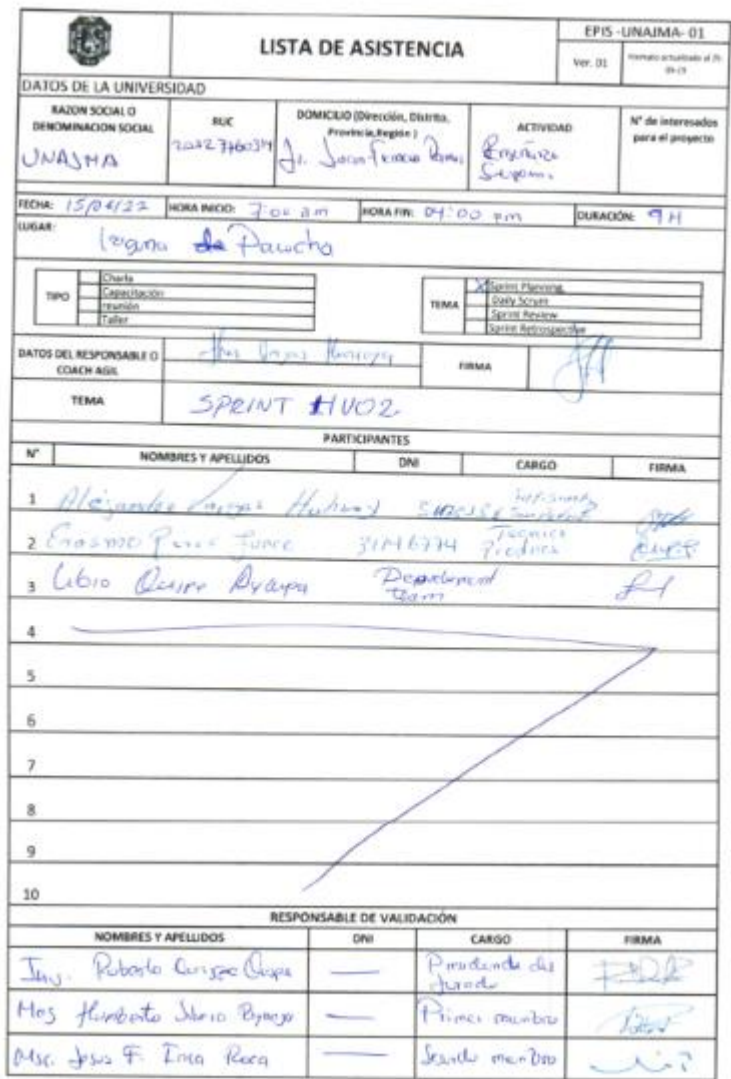 LISTA DE ASISTENCIA
EPIS -UNAJMA- 01
Ver. 01
Formato actualizado al
DATOS DE LA UNIVERSIDAD
RAZON SOCIAL O DENOMINACION SOCIAL
RUC
DOMICILIO (Dirección, Distrito, Provincia, Región )
ACTIVIDAD
N° de interesados para el proyecto
UNAJMA
Jr. Juan Francisco Ramos
Enseñanza
FECHA: 15/06/22 HORA INICIO: 7:00 am HORA FIN: 04:00 pm DURACIÓN: 9 H
LUGAR:
laguna de Paucho
TIPO
Charla
Capacitación
reunión
Taller
TEMA
X Sprint Planning
Daily Scrum
Sprint Review
Sprint Retrospective
DATOS DEL RESPONSABLE O COACH AGIL
FIRMA
TEMA
SPRINT HU02
PARTICIPANTES
N° NOMBRES Y APELLIDOS DNI CARGO FIRMA
1 Alejandro Vargas
2 Erasmo 31146774 Tecnico
3 Libio Quispe Development team
4
5
6
7
8
9
10
RESPONSABLE DE VALIDACIÓN
NOMBRES Y APELLIDOS DNI CARGO FIRMA
Ing. Roberto Quispe Quispe — Presidente del Jurado
Humberto Silvera — Primer miembro
Msc. Jesus F. Inca Roca — Segundo miembro